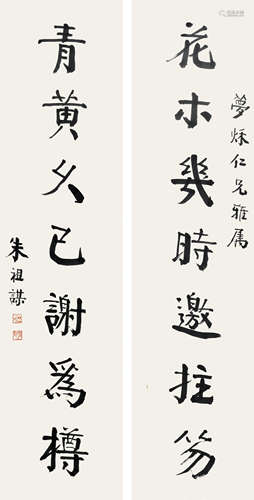 夢㷌仁兄雅属
花木幾時邀拄笏
青黃久已謝為樽
朱祖謀